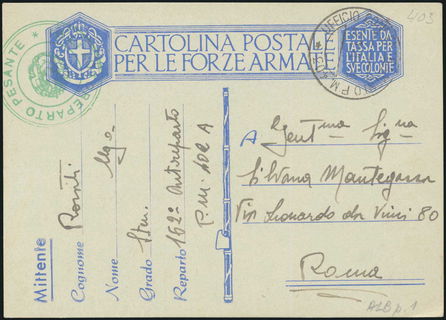 CARTOLINA POSTALE
PER LE FORZE ARMATE
ESENTE DA
TASSA PER
L'ITALIA E
SVE COLONIE
403
REPARTO PESANTE
UFFICIO
P M
Mittente
Cognome
Nome Ugo
Grado
Reparto 162º
P. M. 402 A
A Gent.ma Sig.na
Silvana Mantegazza
Via Leonardo da Vinci 80
Roma
ALB p. 1